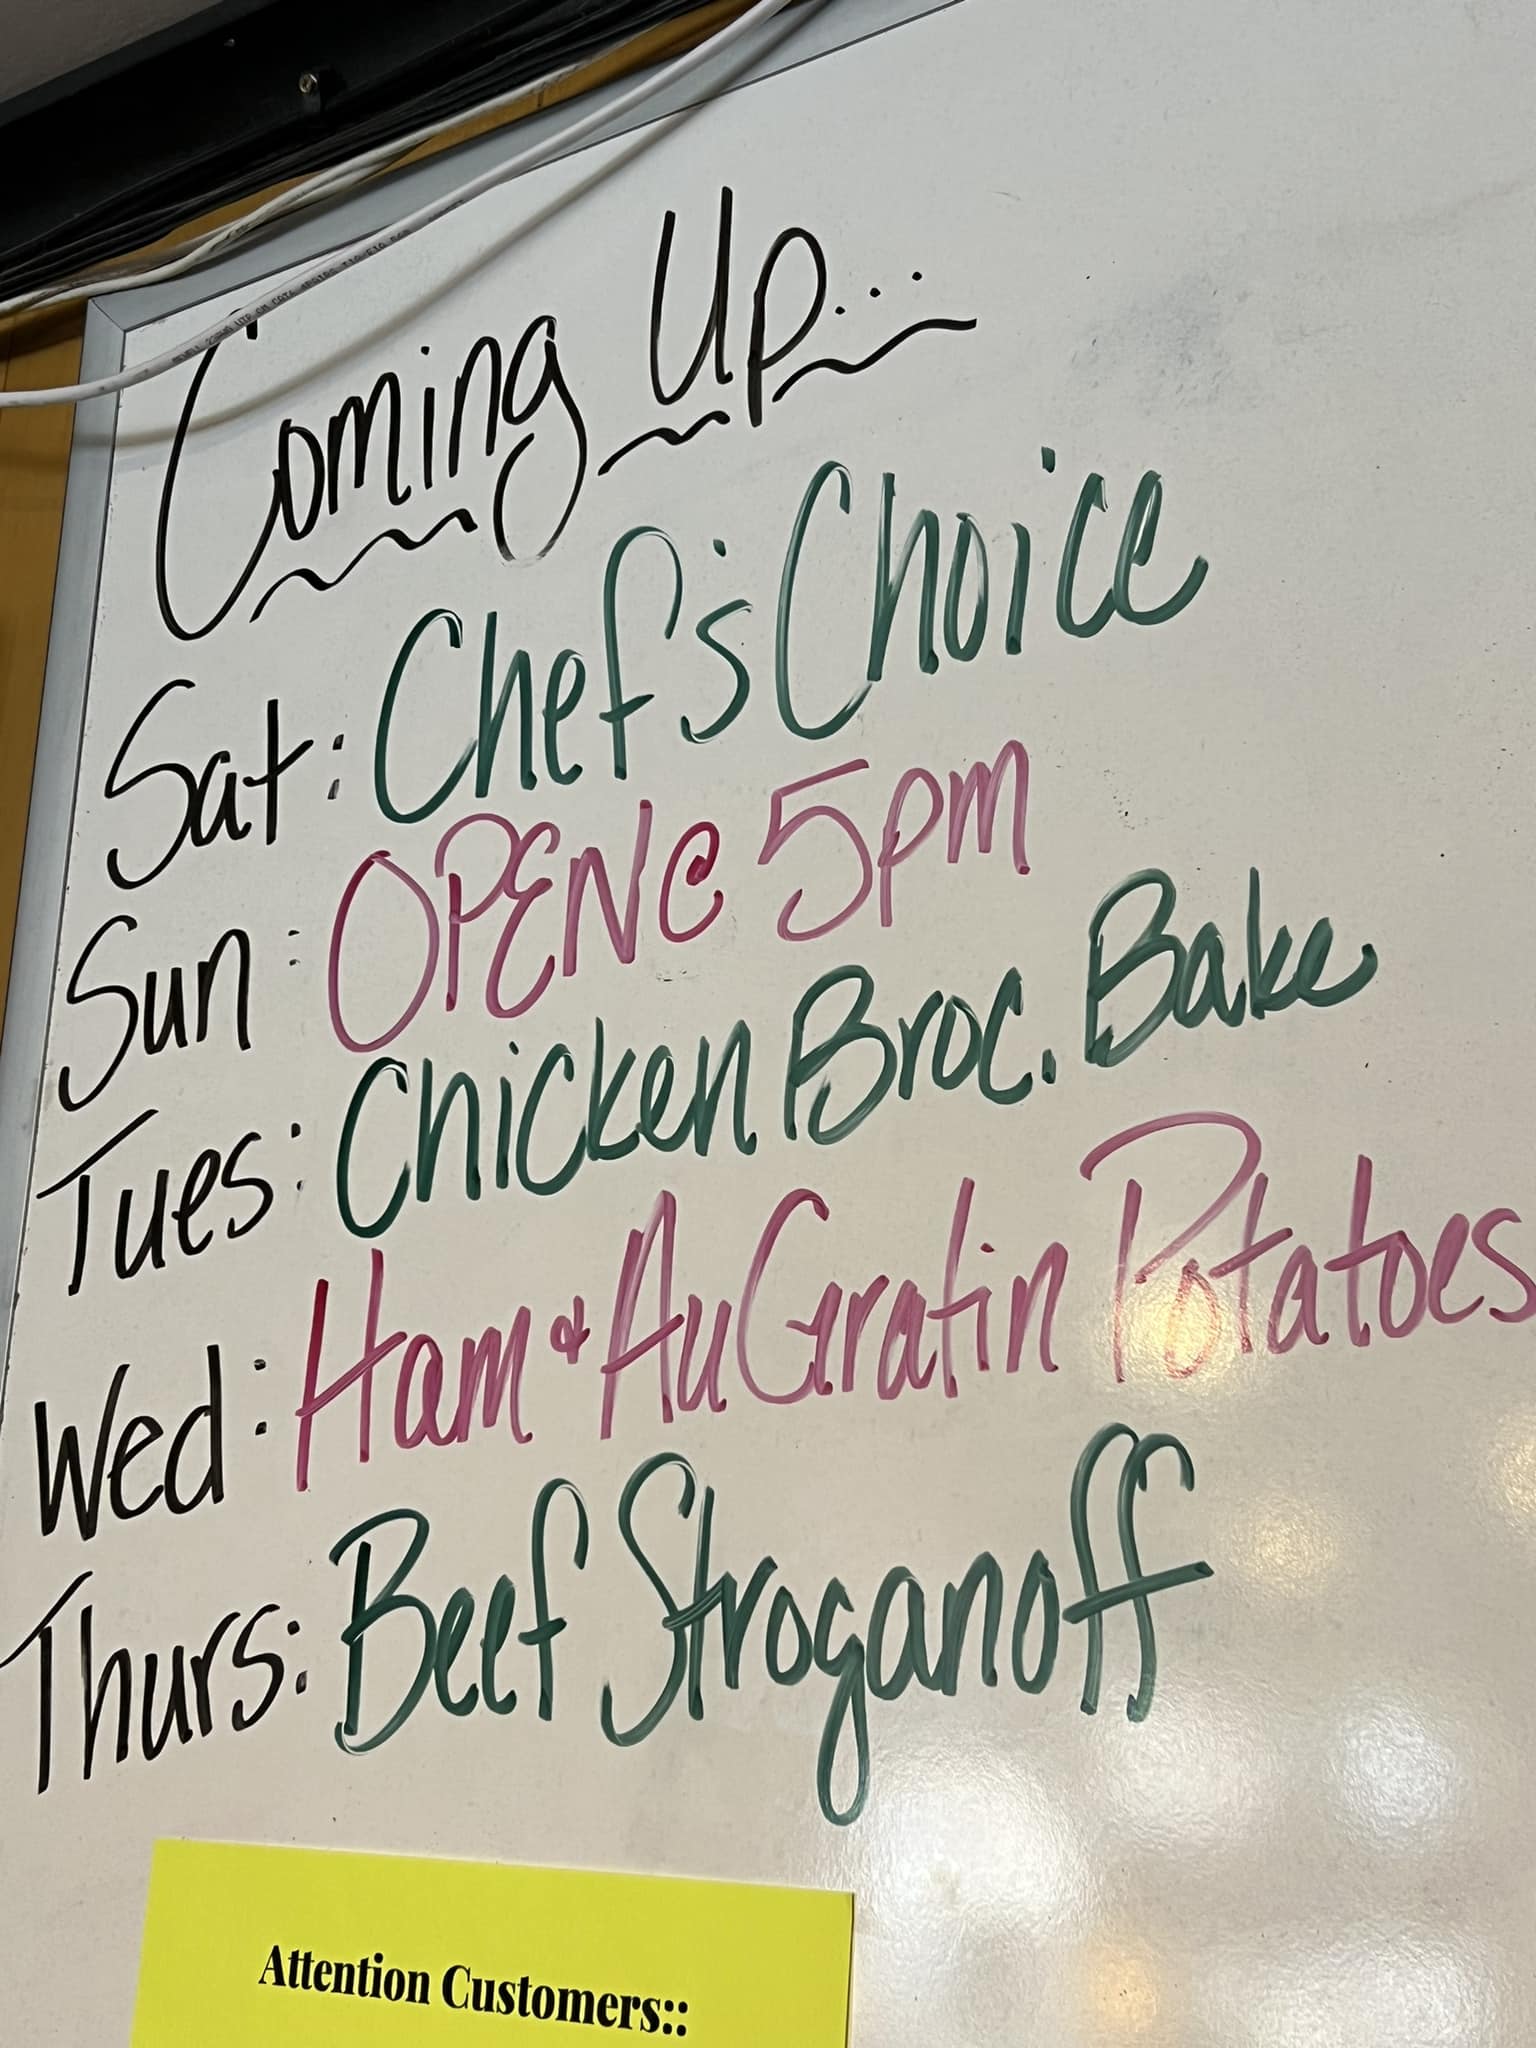 Coming Up...
Sat: Chef's Choice
Sun: OPEN @ 5pm
Tues: Chicken Broc. Bake
Wed: Ham & Au Gratin Potatoes
Thurs: Beef Stroganoff
Attention Customers::